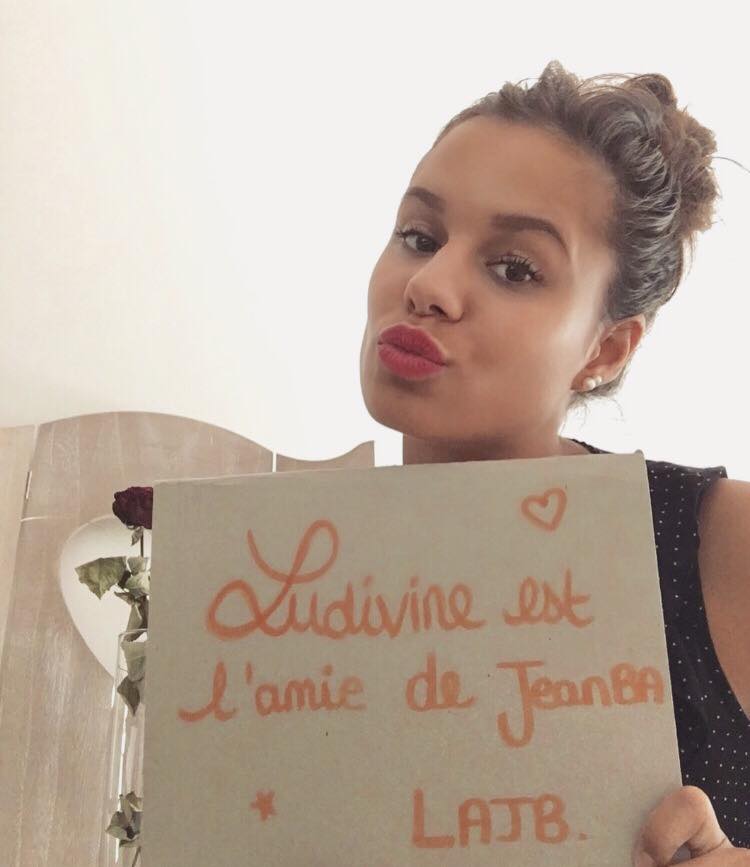 Ludivine est
l'amie de JeanBA
LAJB.